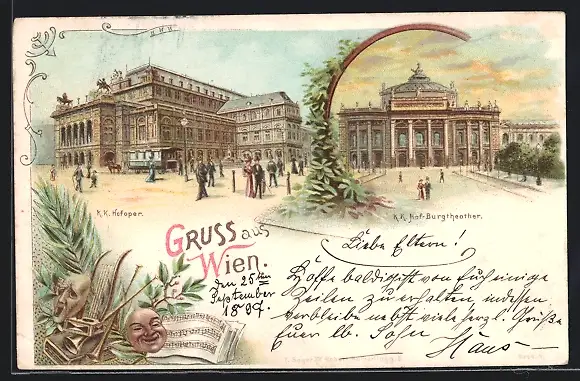 K.K. Hofoper.
K.K. Hof-Burgtheather.
GRUSS aus
Wien.
den 25ten
September
1897.
Liebe Eltern!
Hoffe baldigst von Euch einige
Zeilen zu erhalten, indessen
verbleibe nebst viele herzl. Grüße
Euer lb. Sohn
Hans